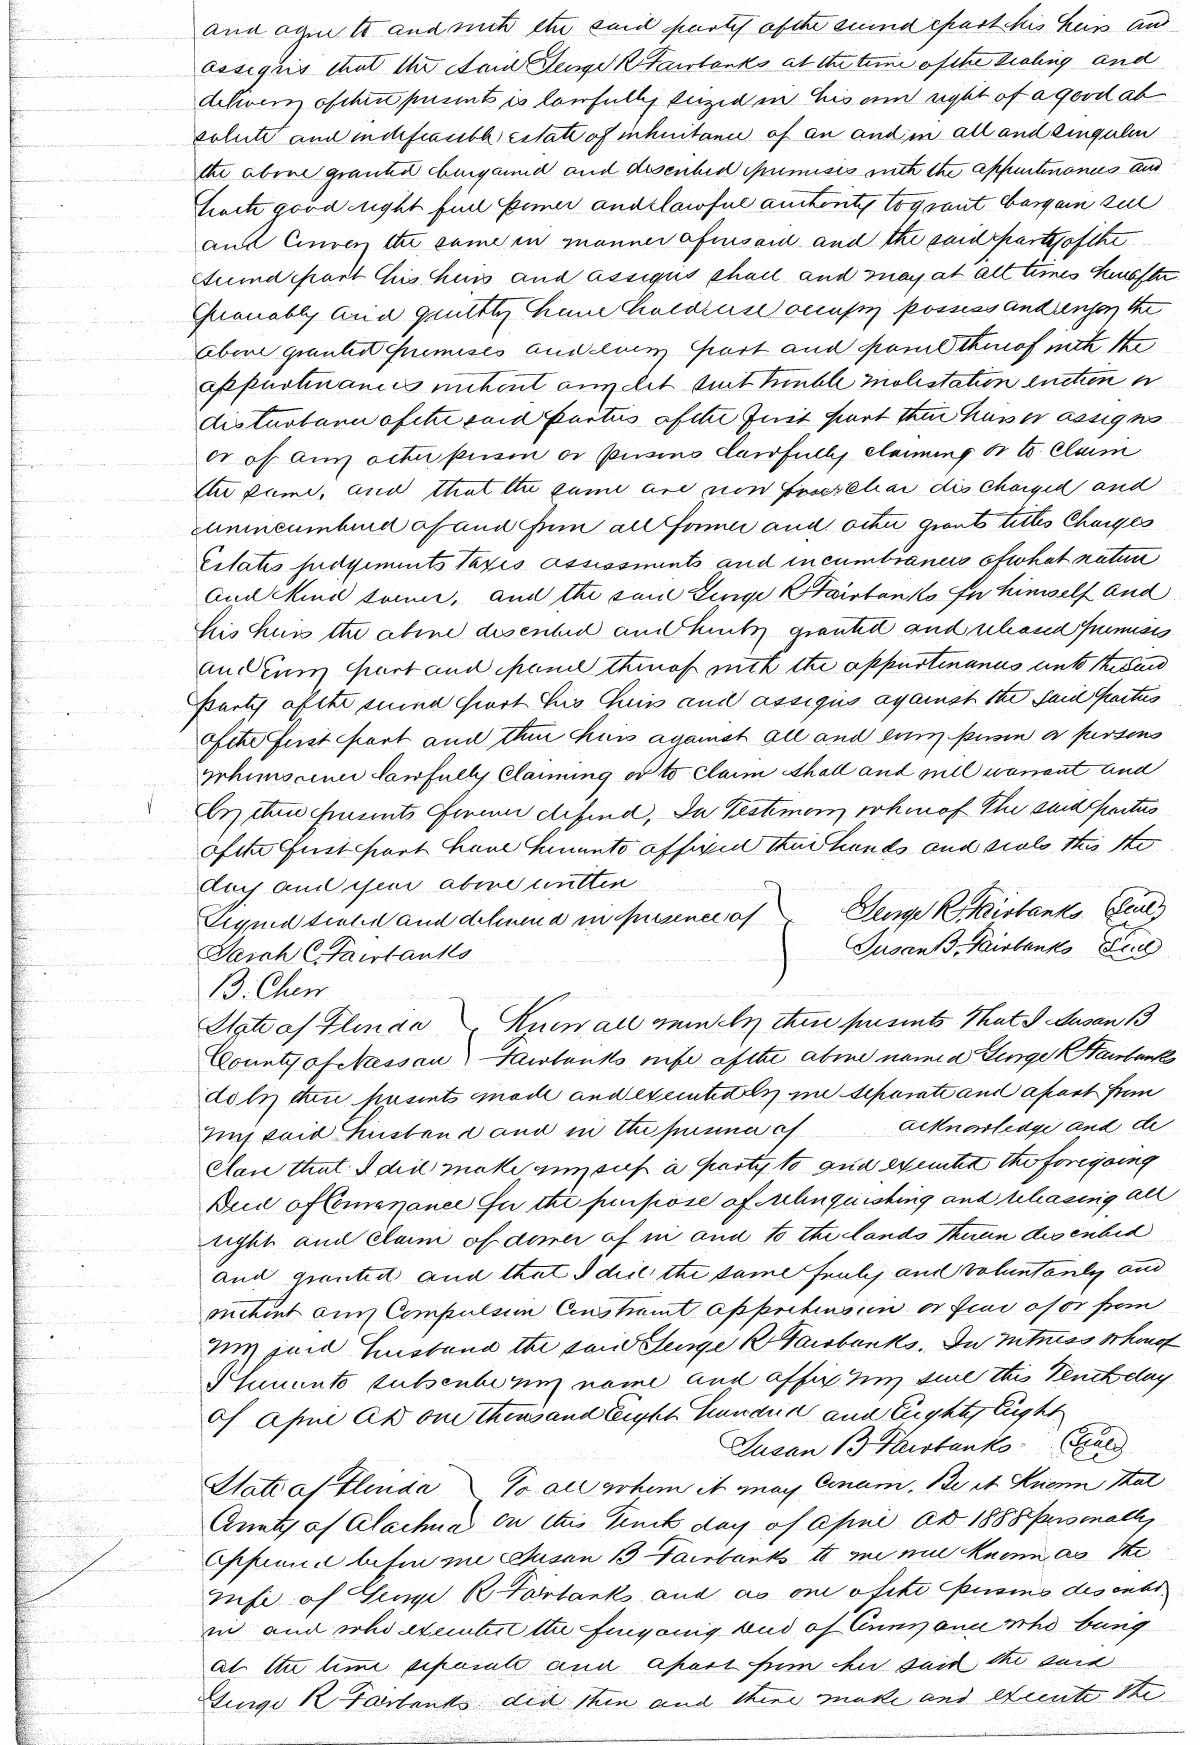 and agree to and with the said party of the second part his heirs and
assigns that the said George R Fairbanks at the time of the sealing and
delivery of these presents is lawfully seized in his own right of a good ab
solute and indefeasible estate of inheritance of an and in all and singular
the above granted bargained and described premises with the appurtenances and
hath good right full power and lawful authority to grant bargain sell
and Convey the same in manner aforesaid and the said party of the
second part his heirs and assigns shall and may at all times hereafter
Peaceably and quietly have hold use occupy possess and enjoy the
above granted premises and every part and parcel thereof with the
appurtenances without any let suit trouble molestation eviction or
disturbance of the said parties of the First part their heirs or assigns
or of any other person or persons lawfully claiming or to Claim
the same, and that the same are now free clear discharged and
unincumbered of and from all former and other grants titles Charges
Estates judgements taxes assessments and incumbrances of what nature
and Kind soever, and the said George R Fairbanks for himself and
his heirs the above described and hereby granted and released premises
and Every part and parcel thereof with the appurtenances unto the said
Party of the second part his heirs and assigns against the said parties
of the first part and their heirs against all and every person or persons
whomsoever lawfully Claiming or to claim shall and will warrant and
by these presents forever defend, In Testimony whereof The said parties
of the first part have hereunto affixed their hands and seals this the
day and year above written
Signed sealed and delivered in presence of George R. Fairbanks (Seal)
Sarah C. Fairbanks Susan B. Fairbanks Seal
B. Chew
State of Florida Know all men by these presents That I Susan B
County of Nassau Fairbanks wife of the above named George R Fairbanks
do by these presents made and executed by me separate and apart from
my said husband and in the presence of acknowledge and de
clare that I did make myself a party to and executed the foregoing
Deed of Conveyance for the purpose of relinquishing and releasing all
right and Claim of dower of in and to the lands therein described
and granted and that I did the same freely and voluntarily and
without any Compulsion Constraint apprehension or fear of or from
my said husband the said George R Fairbanks. In witness whereof
I hereunto subscribe my name and affix my seal this Tenth day
of April AD one thousand Eight hundred and Eighty Eight
Susan B Fairbanks (Seal)
State of Florida To all whom it may Concern. Be it Known that
County of Alachua On this Tenth day of April AD 1888 personally
Appeared before me Susan B Fairbanks to me well Known as the
wife of George R Fairbanks and as one of the persons described
in and who executed the foregoing Deed of Conveyance who being
at the time separate and apart from her said the said
George R Fairbanks did then and there make and execute the